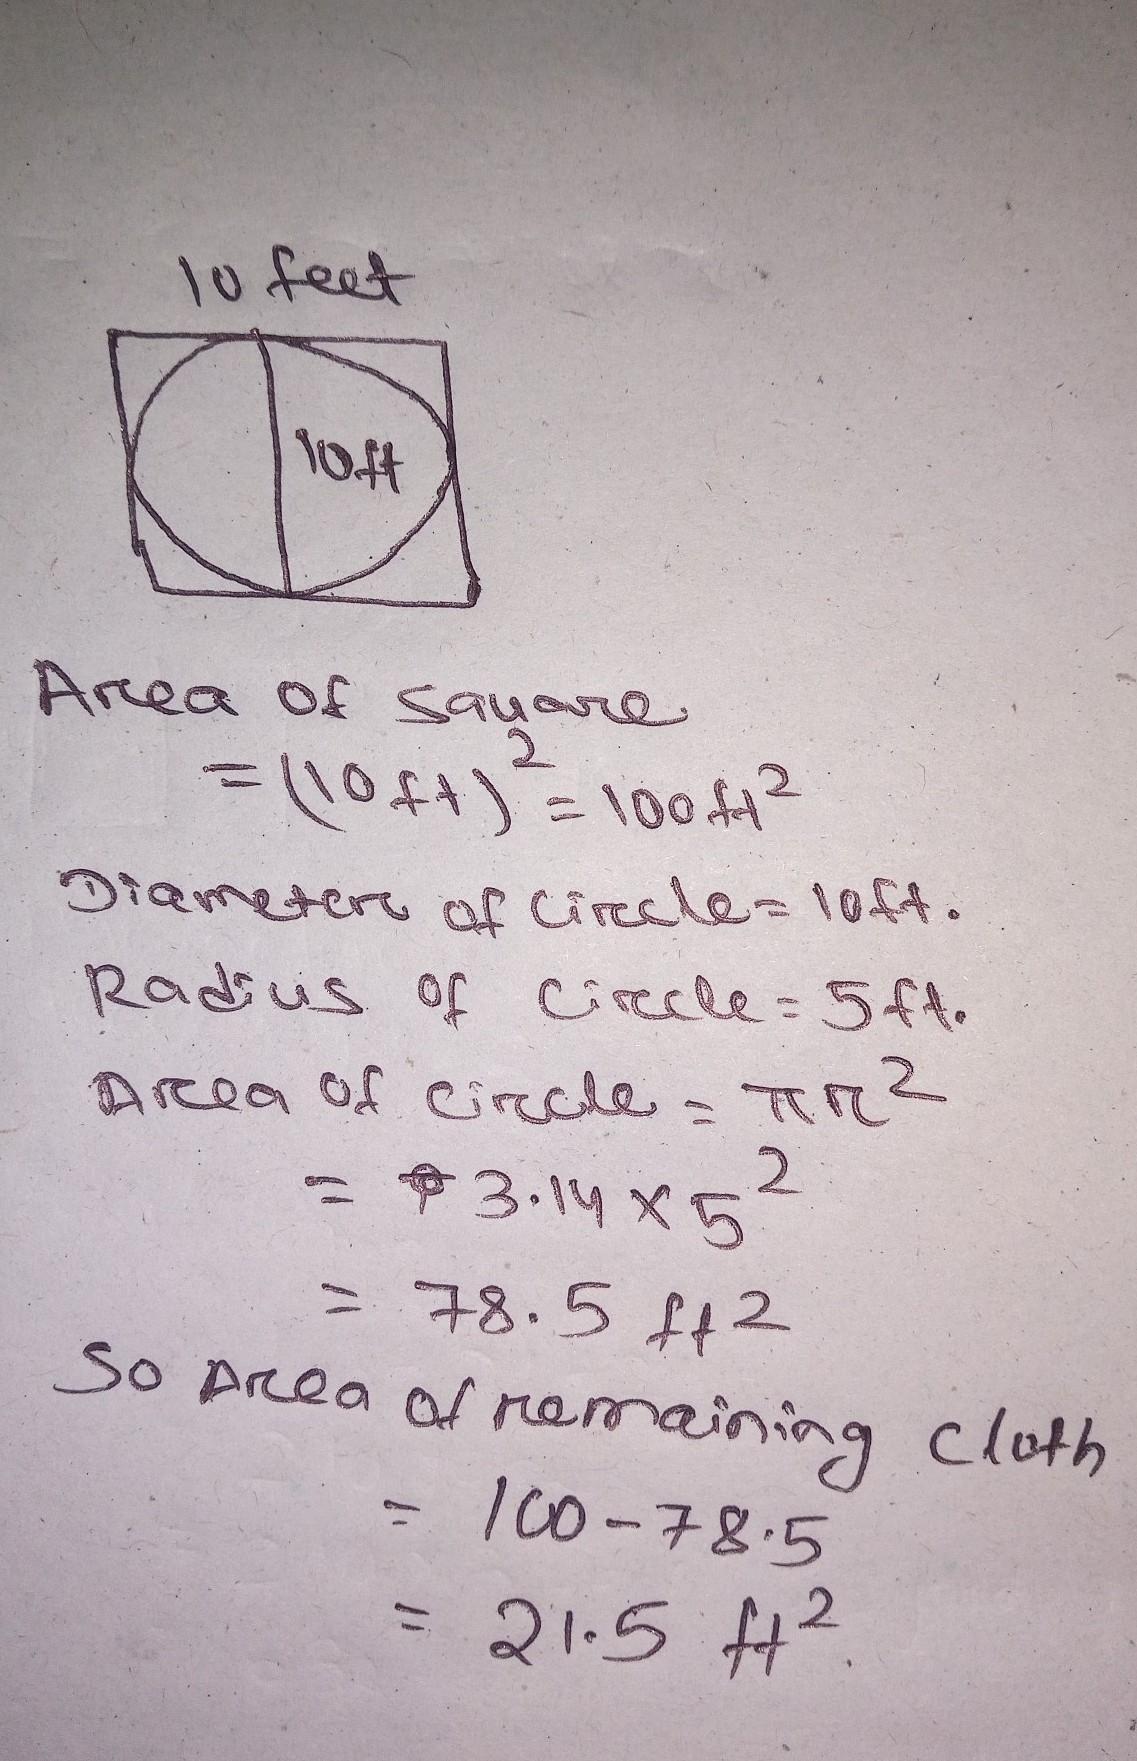 10 feet
10ft
Area of square
= (10ft)² = 100ft²
Diameter of circle = 10ft.
Radius of circle = 5ft.
Area of circle = πr²
= 3.14 × 5²
= 78.5 ft2
So Area of remaining cloth
= 100 - 78.5
= 21.5 ft².